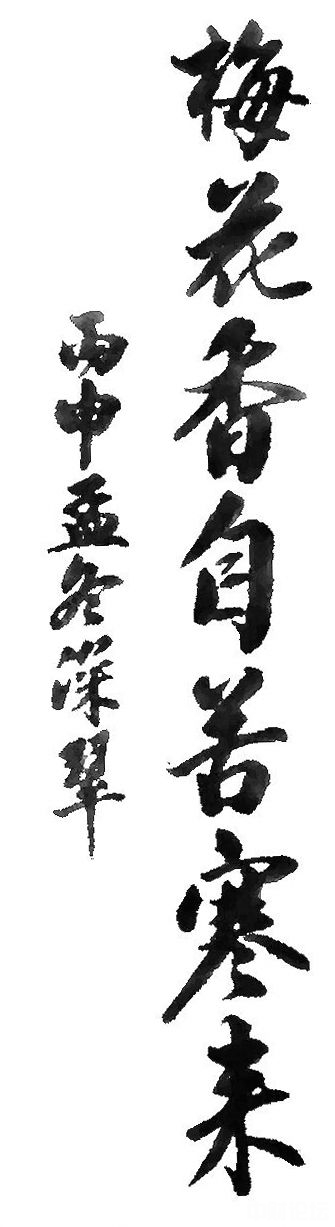 梅花香自苦寒来
丙申孟冬深翠